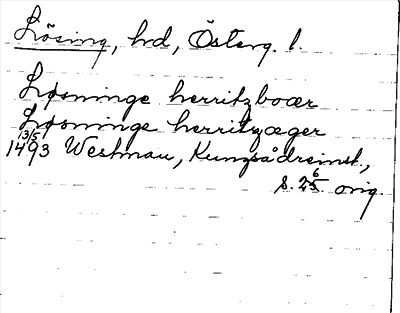 Lösing, hd, Österg. l.
Løsninge herritzboær
Løsninge herritzæger
13/5
1493 Westman, Kungsådreinst.,
s. 26 orig.